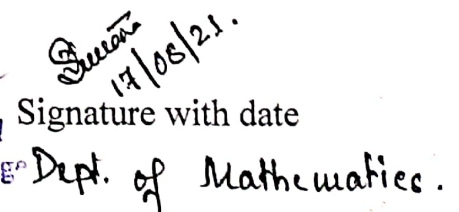 17/08/21.
Signature with date
Dept. of Mathematics.